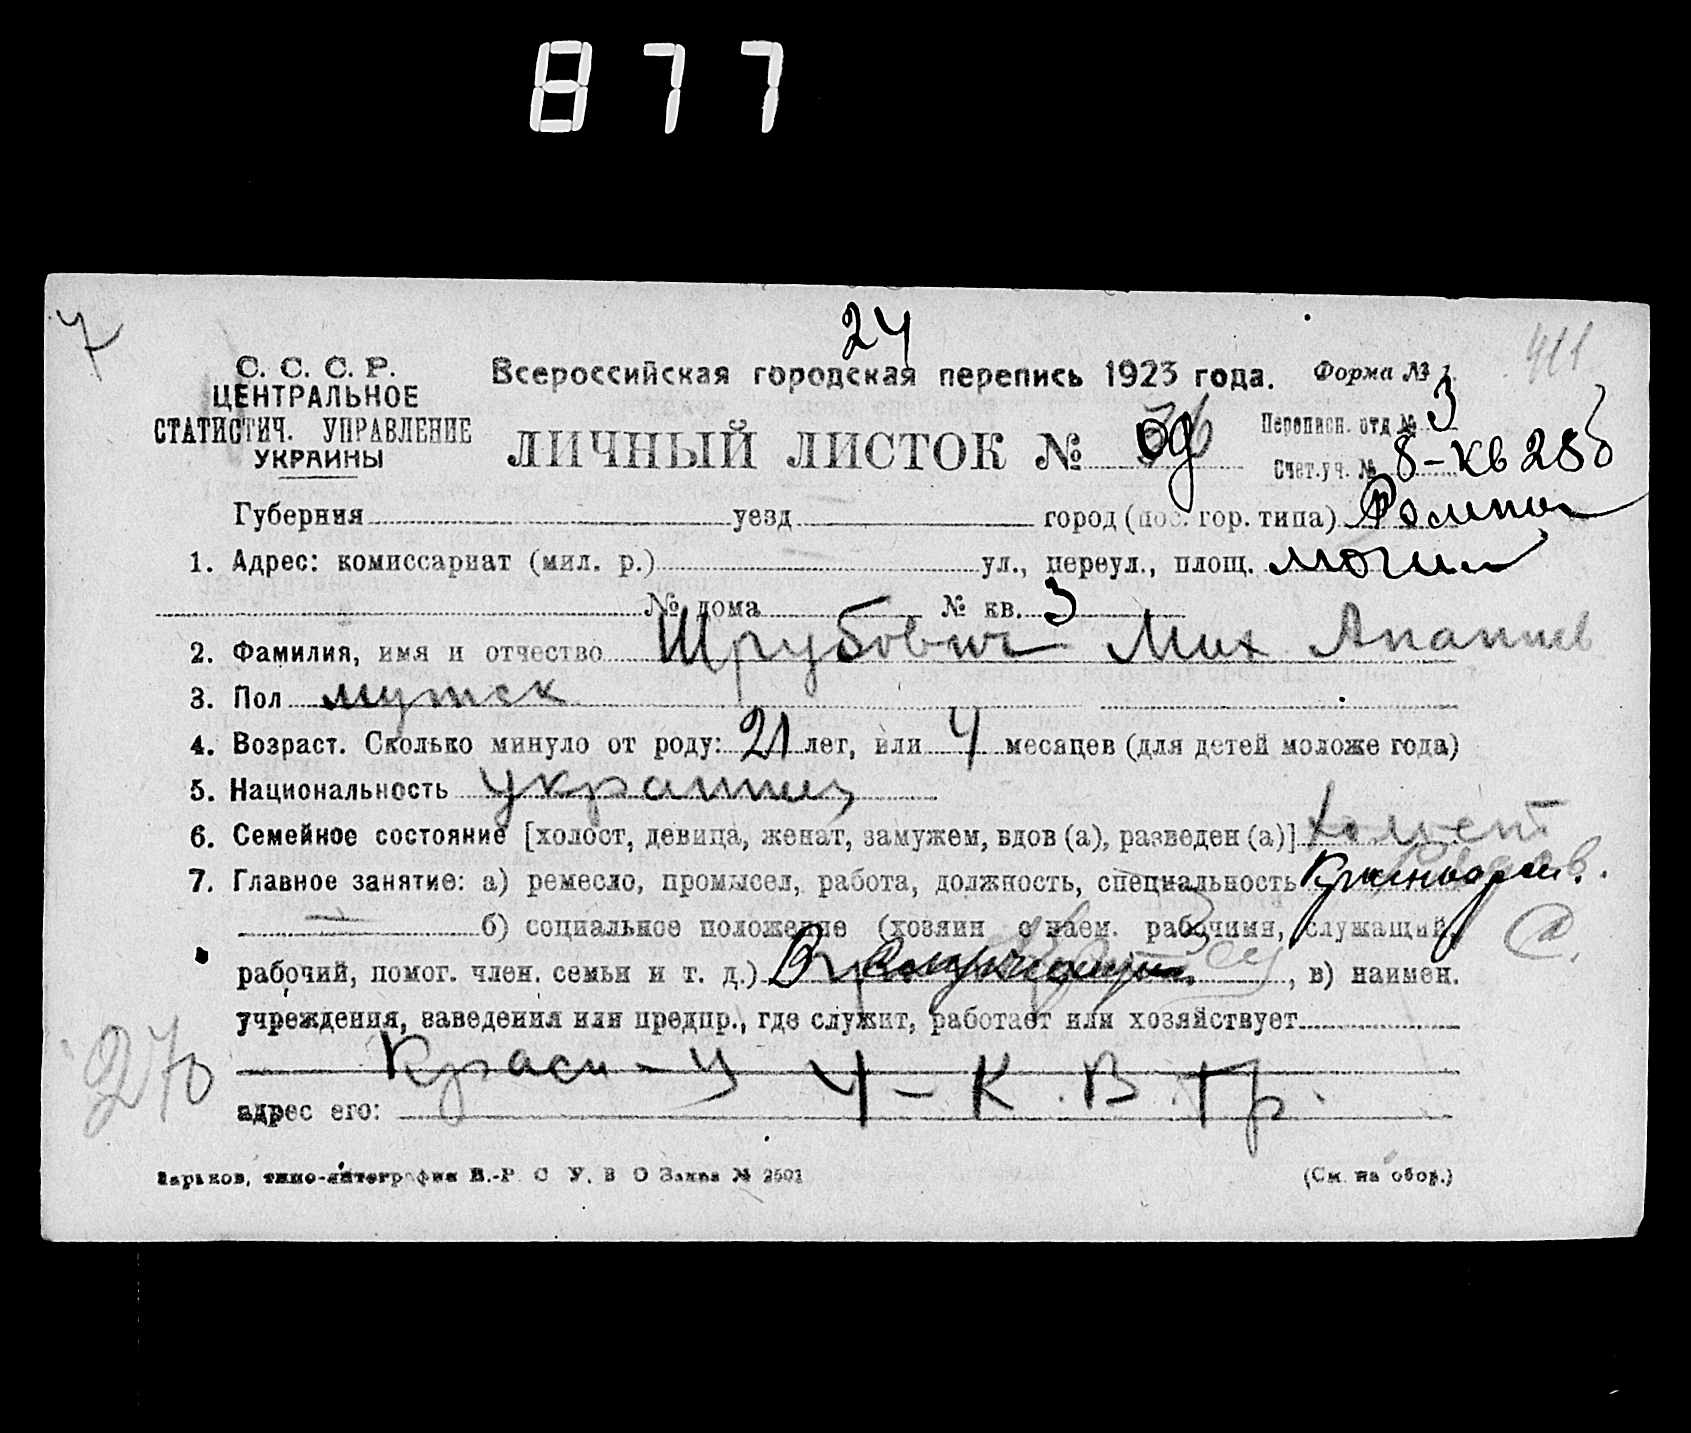 877
7
24
411
С. С. С. Р.
ЦЕНТРАЛЬНОЕ
СТАТИСТИЧ. УПРАВЛЕНИЕ
УКРАИНЫ
Всероссийская городская перепись 1923 года.
Форма № 1.
ЛИЧНЫЙ ЛИСТОК №
Переписн. отд. № 3
Счет. уч. № 8-кв 28б
Губерния уезд город (пос. гор. типа)
1. Адрес: комиссариат (мил. р.) ул., переул., площ.
№ дома № кв. 3
2. Фамилия, имя и отчество Шрубович Мих Ананиев
3. Пол мужск
4. Возраст. Сколько минуло от роду: 21 лет, или 4 месяцев (для детей моложе года)
5. Национальность украинец
6. Семейное состояние [холост, девица, женат, замужем, вдов (а), разведен (а)] холост
7. Главное занятие: а) ремесло, промысел, работа, должность, специальность
б) социальное положение (хозяин с наем. рабочими, служащий,
рабочий, помог. член. семьи и т. д.) , в) наимен.
учреждения, заведения или предпр., где служит, работает или хозяйствует
Красн-У Ч-К. В. Гр.
адрес его:
270
Харьков, типо-литография В.-Р С У. В О Заказ № 2501
(См. на обор.)